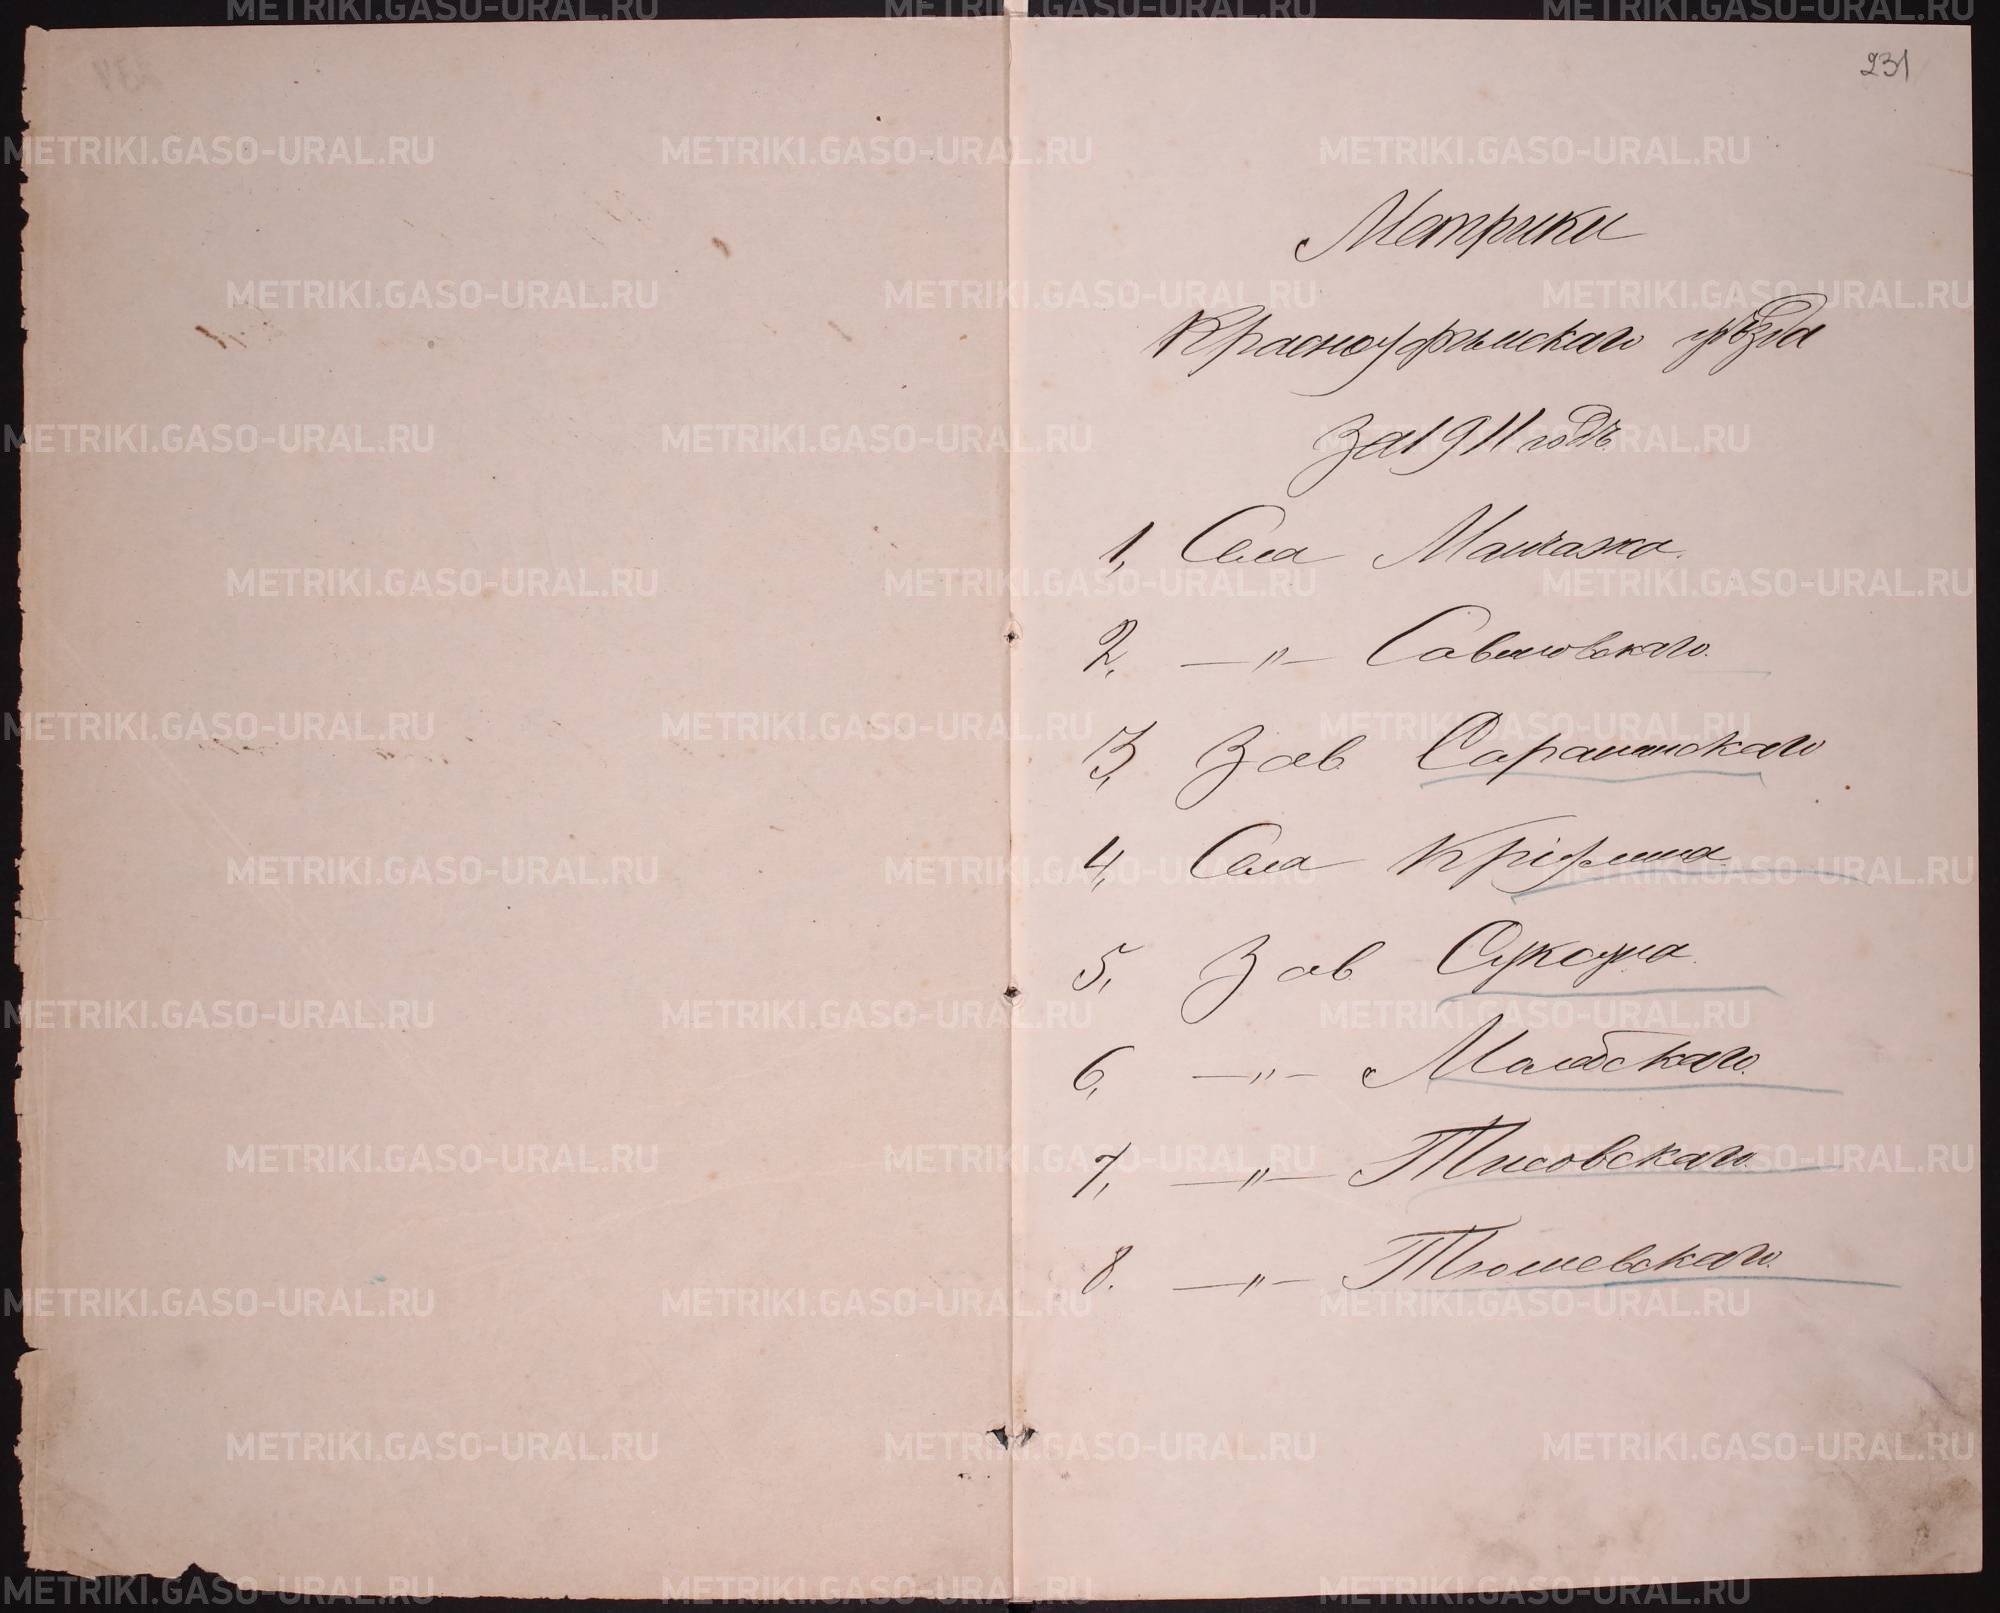 231
Метрики
Красноуфимскаго уѣзда
за 1911 годъ.
1, Села Манчажа.
2, —„— Савиновскаго.
3, Зав. Саранинскаго
4, Села Крiулина.
5, Зав. Суксуна.
6, —„— Молебскаго.
7, —„— Тисовскаго.
8. —„— Тюшевскаго.
METRIKI.GASO-URAL.RU